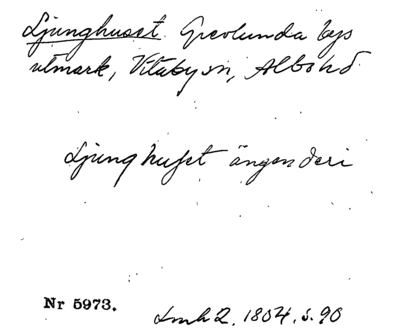 Ljunghuset. Grevlunda bys
utmark, Vitaby sn, Albo hd
Ljunghuset ängen deri
Nr 5973.
Lmh 2. 1804. s. 90